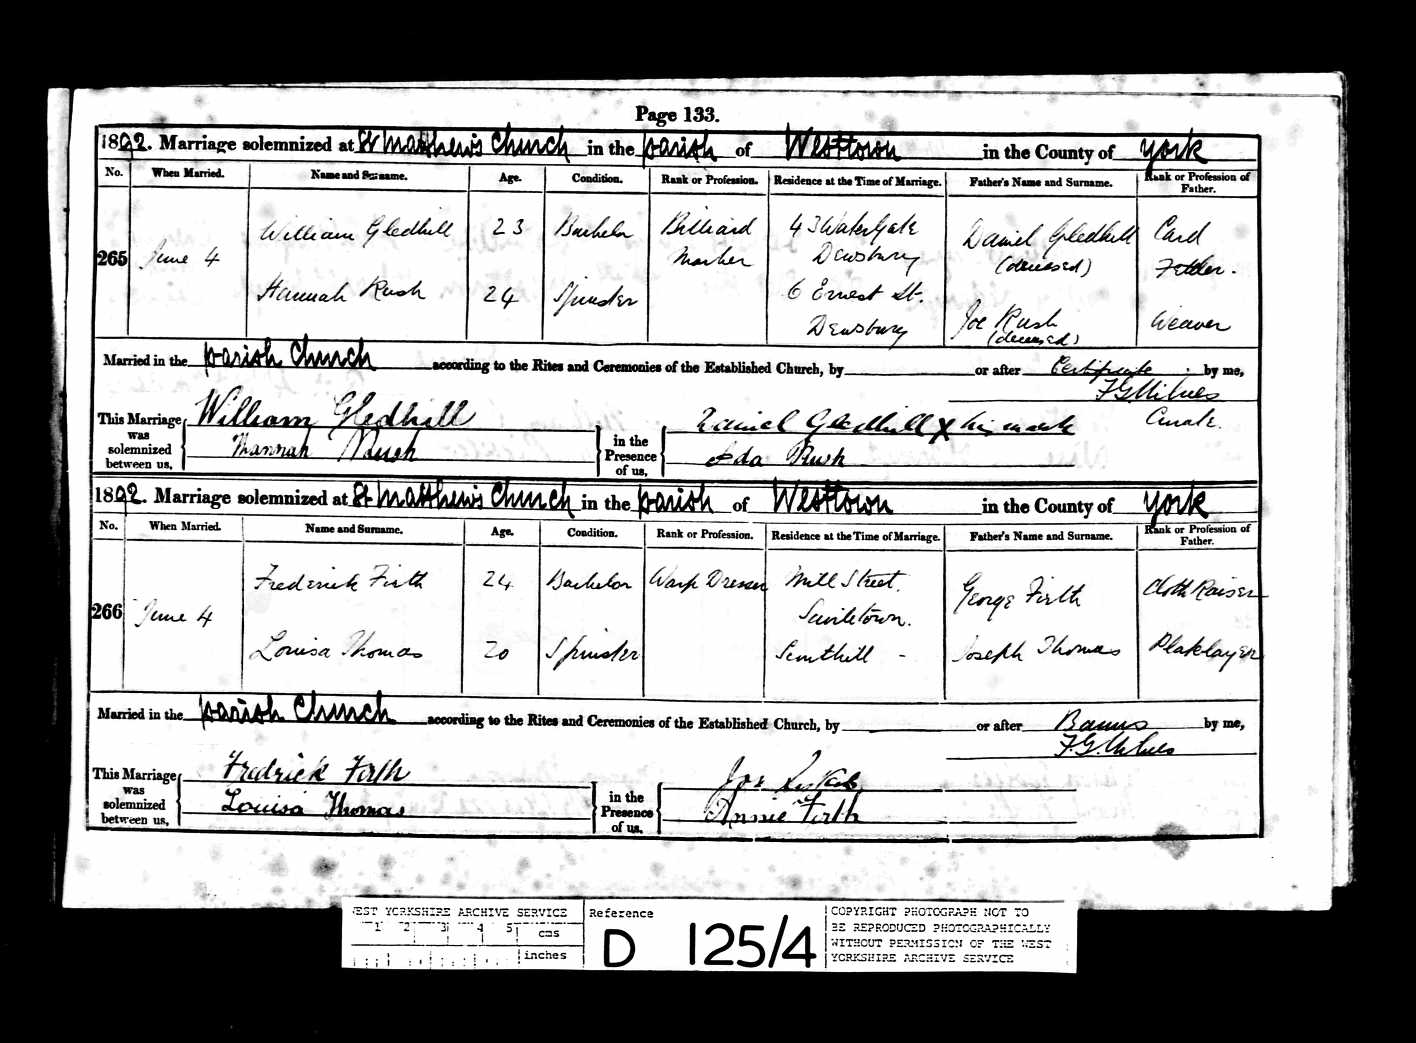 Page 133.
1892. Marriage solemnized at St Matthew's Church in the parish of Westtown in the County of York
No. When Married. Name and Surname. Age. Condition. Rank or Profession. Residence at the Time of Marriage. Father's Name and Surname. Rank or Profession of Father.
265 June 4 William Gledhill 23 Bachelor Billiard Marker 43 Watergate Dewsbury Daniel Gledhill (deceased) Card Fettler.
Hannah Rush 24 Spinster 6 Ernest St. Dewsbury Joe Rush (deceased) Weaver
Married in the parish Church according to the Rites and Ceremonies of the Established Church, by or after Certificate by me,
F. G. Milnes
Curate.
This Marriage was solemnized between us, William Gledhill in the Presence of us, Daniel Gledhill X his mark
Hannah Rush Ida Rush
1892. Marriage solemnized at St Matthew's Church in the parish of Westtown in the County of York
No. When Married. Name and Surname. Age. Condition. Rank or Profession. Residence at the Time of Marriage. Father's Name and Surname. Rank or Profession of Father.
266 June 4 Frederick Firth 24 Bachelor Warp Dresser Mill Street. Saviletown. George Firth Cloth Raiser
Louisa Thomas 20 Spinster Smithill - Joseph Thomas Platelayer
Married in the parish Church according to the Rites and Ceremonies of the Established Church, by or after Banns by me,
F. G. Milnes
This Marriage was solemnized between us, Fredrick Firth in the Presence of us, Joe
Louisa Thomas Annie Firth
WEST YORKSHIRE ARCHIVE SERVICE
1 2 3 4 5 cms
inches
Reference
D 125/4
COPYRIGHT PHOTOGRAPH NOT TO
BE REPRODUCED PHOTOGRAPHICALLY
WITHOUT PERMISSION OF THE WEST
YORKSHIRE ARCHIVE SERVICE